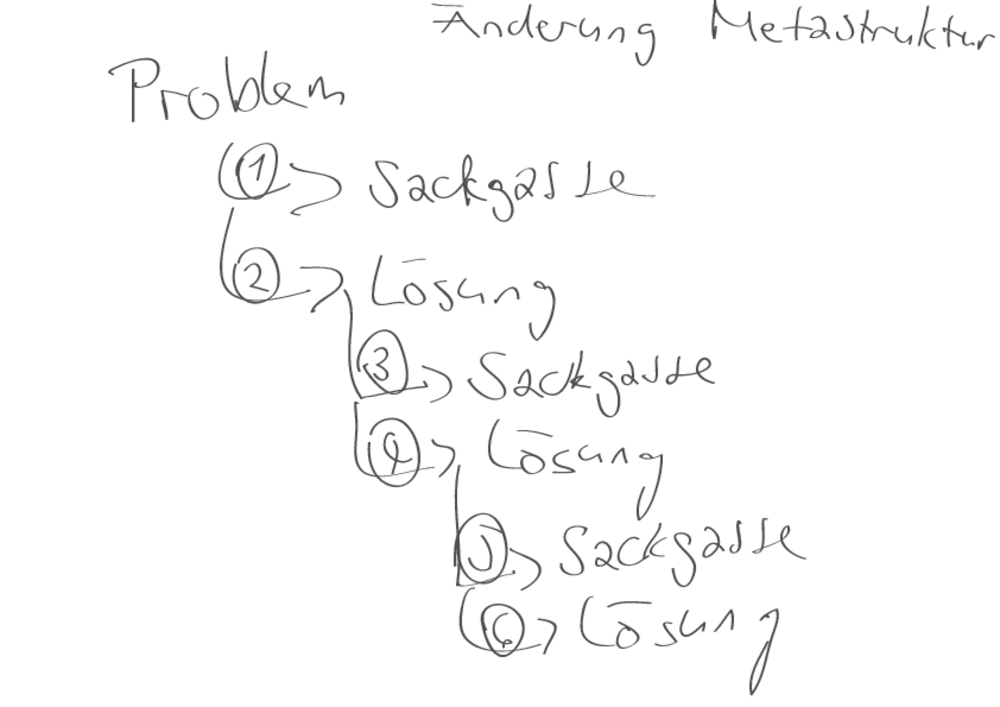 Änderung Metastruktur
Problem
1 > Sackgasse
2 > Lösung
3 > Sackgasse
4 > Lösung
5 > Sackgasse
6 > Lösung